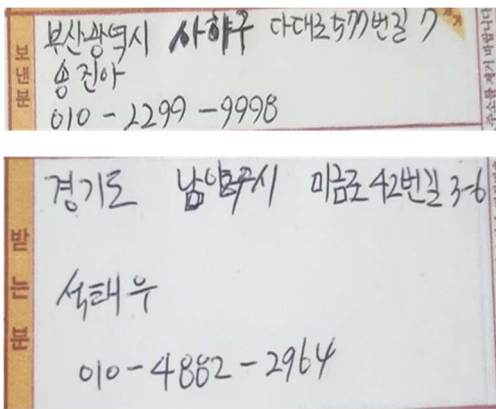 보낸분
부산광역시 사하구 다대로577번길 7
송진아
010-2299-9998
받는분
경기도 남양주시 미금로42번길 3-6
석태우
010-4882-2964